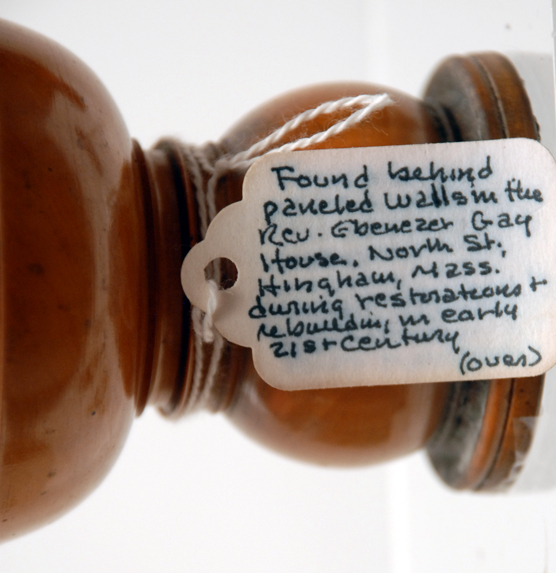 Found behind
paneled walls in the
Rev. Ebenezer Gay
House, North St.,
Hingham, Mass.
during restorations +
rebuilding in early
21st century
(over)